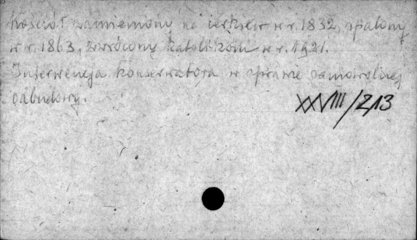 Kościół zamieniony na cerkiew w r. 1832, spalony
w r. 1863, zwrócony katolikom w r. 1921.
Interwencja konserwatora w sprawie samowolnej
odbudowy.
XXVIII/213